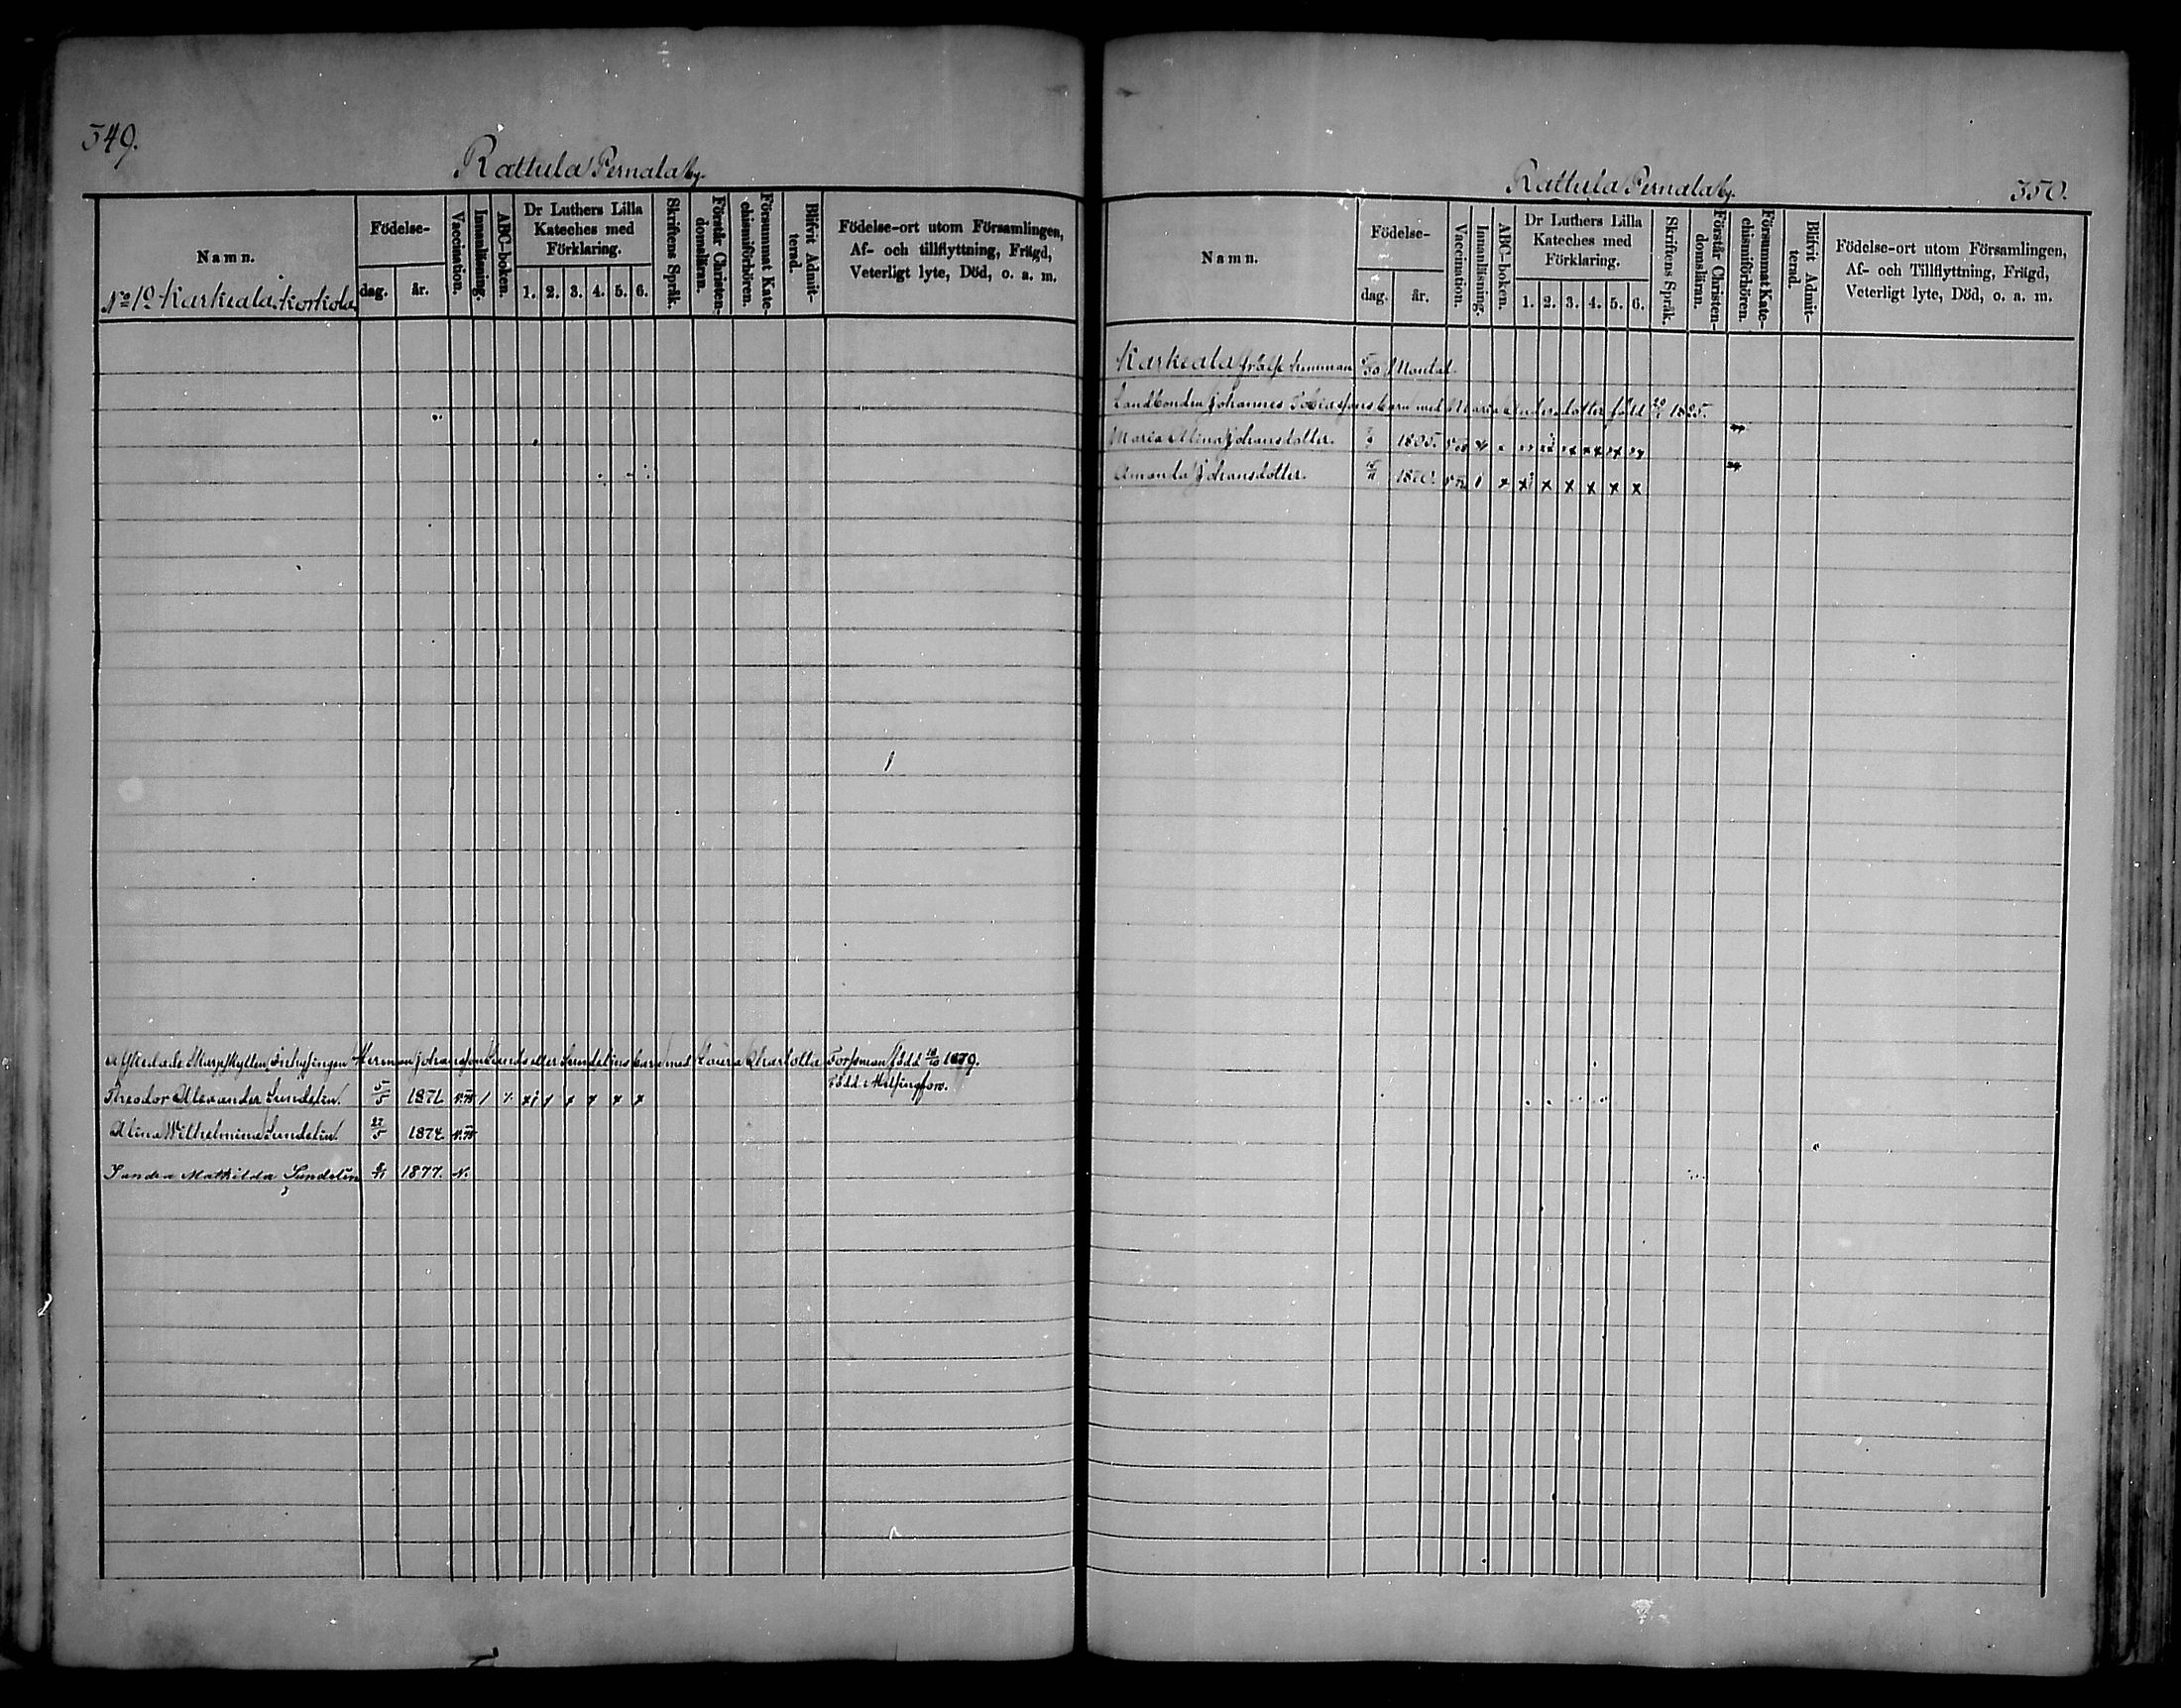 349.
Rattula Pernala by.
Namn.
Födelse-
dag. år.
Vaccination.
Innanläsning.
ABC-boken.
Dr Luthers Lilla Kateches med Förklaring.
1. 2. 3. 4. 5. 6.
Skriftens Språk.
Förstår Christendomsläran.
Försummat Katechismiförhören.
Blifvit Admitterad.
Födelse-ort utom Församlingen, Af- och tillflyttning, Frägd, Veterligt lyte, Död, o. a. m.
No 10 Karkeala, Korkola
Herman Johansson Sunds eller Sundelins barn med Laura Charlotta Forssman född 1879.
Född i Helsingfors.
Theodor Alexander Sundelin. 5/5 1871 / x x x x x x
Alina Wilhelmina Sundelin. 27/5 1874.
Sanda Mathilda Sundelin 1877. N.
Rattula Pernala by.
350.
Namn.
Födelse-
dag. år.
Vaccination.
Innanläsning.
ABC-boken.
Dr Luthers Lilla Kateches med Förklaring.
1. 2. 3. 4. 5. 6.
Skriftens Språk.
Förstår Christendomsläran.
Försummat Katechismiförhören.
Blifvit Admitterad.
Födelse-ort utom Församlingen, Af- och Tillflyttning, Frägd, Veterligt lyte, Död, o. a. m.
Karkeala frälse hemman Mantal.
Landbonden Johannes barn med Maria född 1825.
Maria Alina Johansdotter.
Amanda Johansdotter. 1870. x x x x x x x